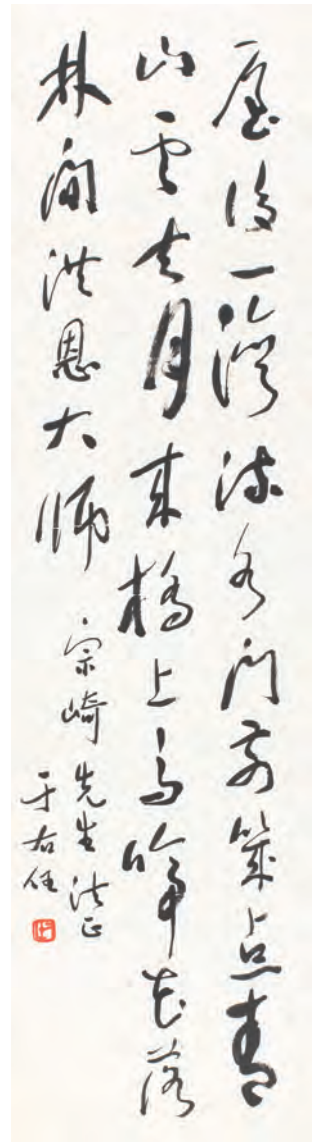 屋後一灣流水門前幾点青
山雲去月來橋上鳥啼花落
林間洪恩大師
宗崎先生法正
于右任